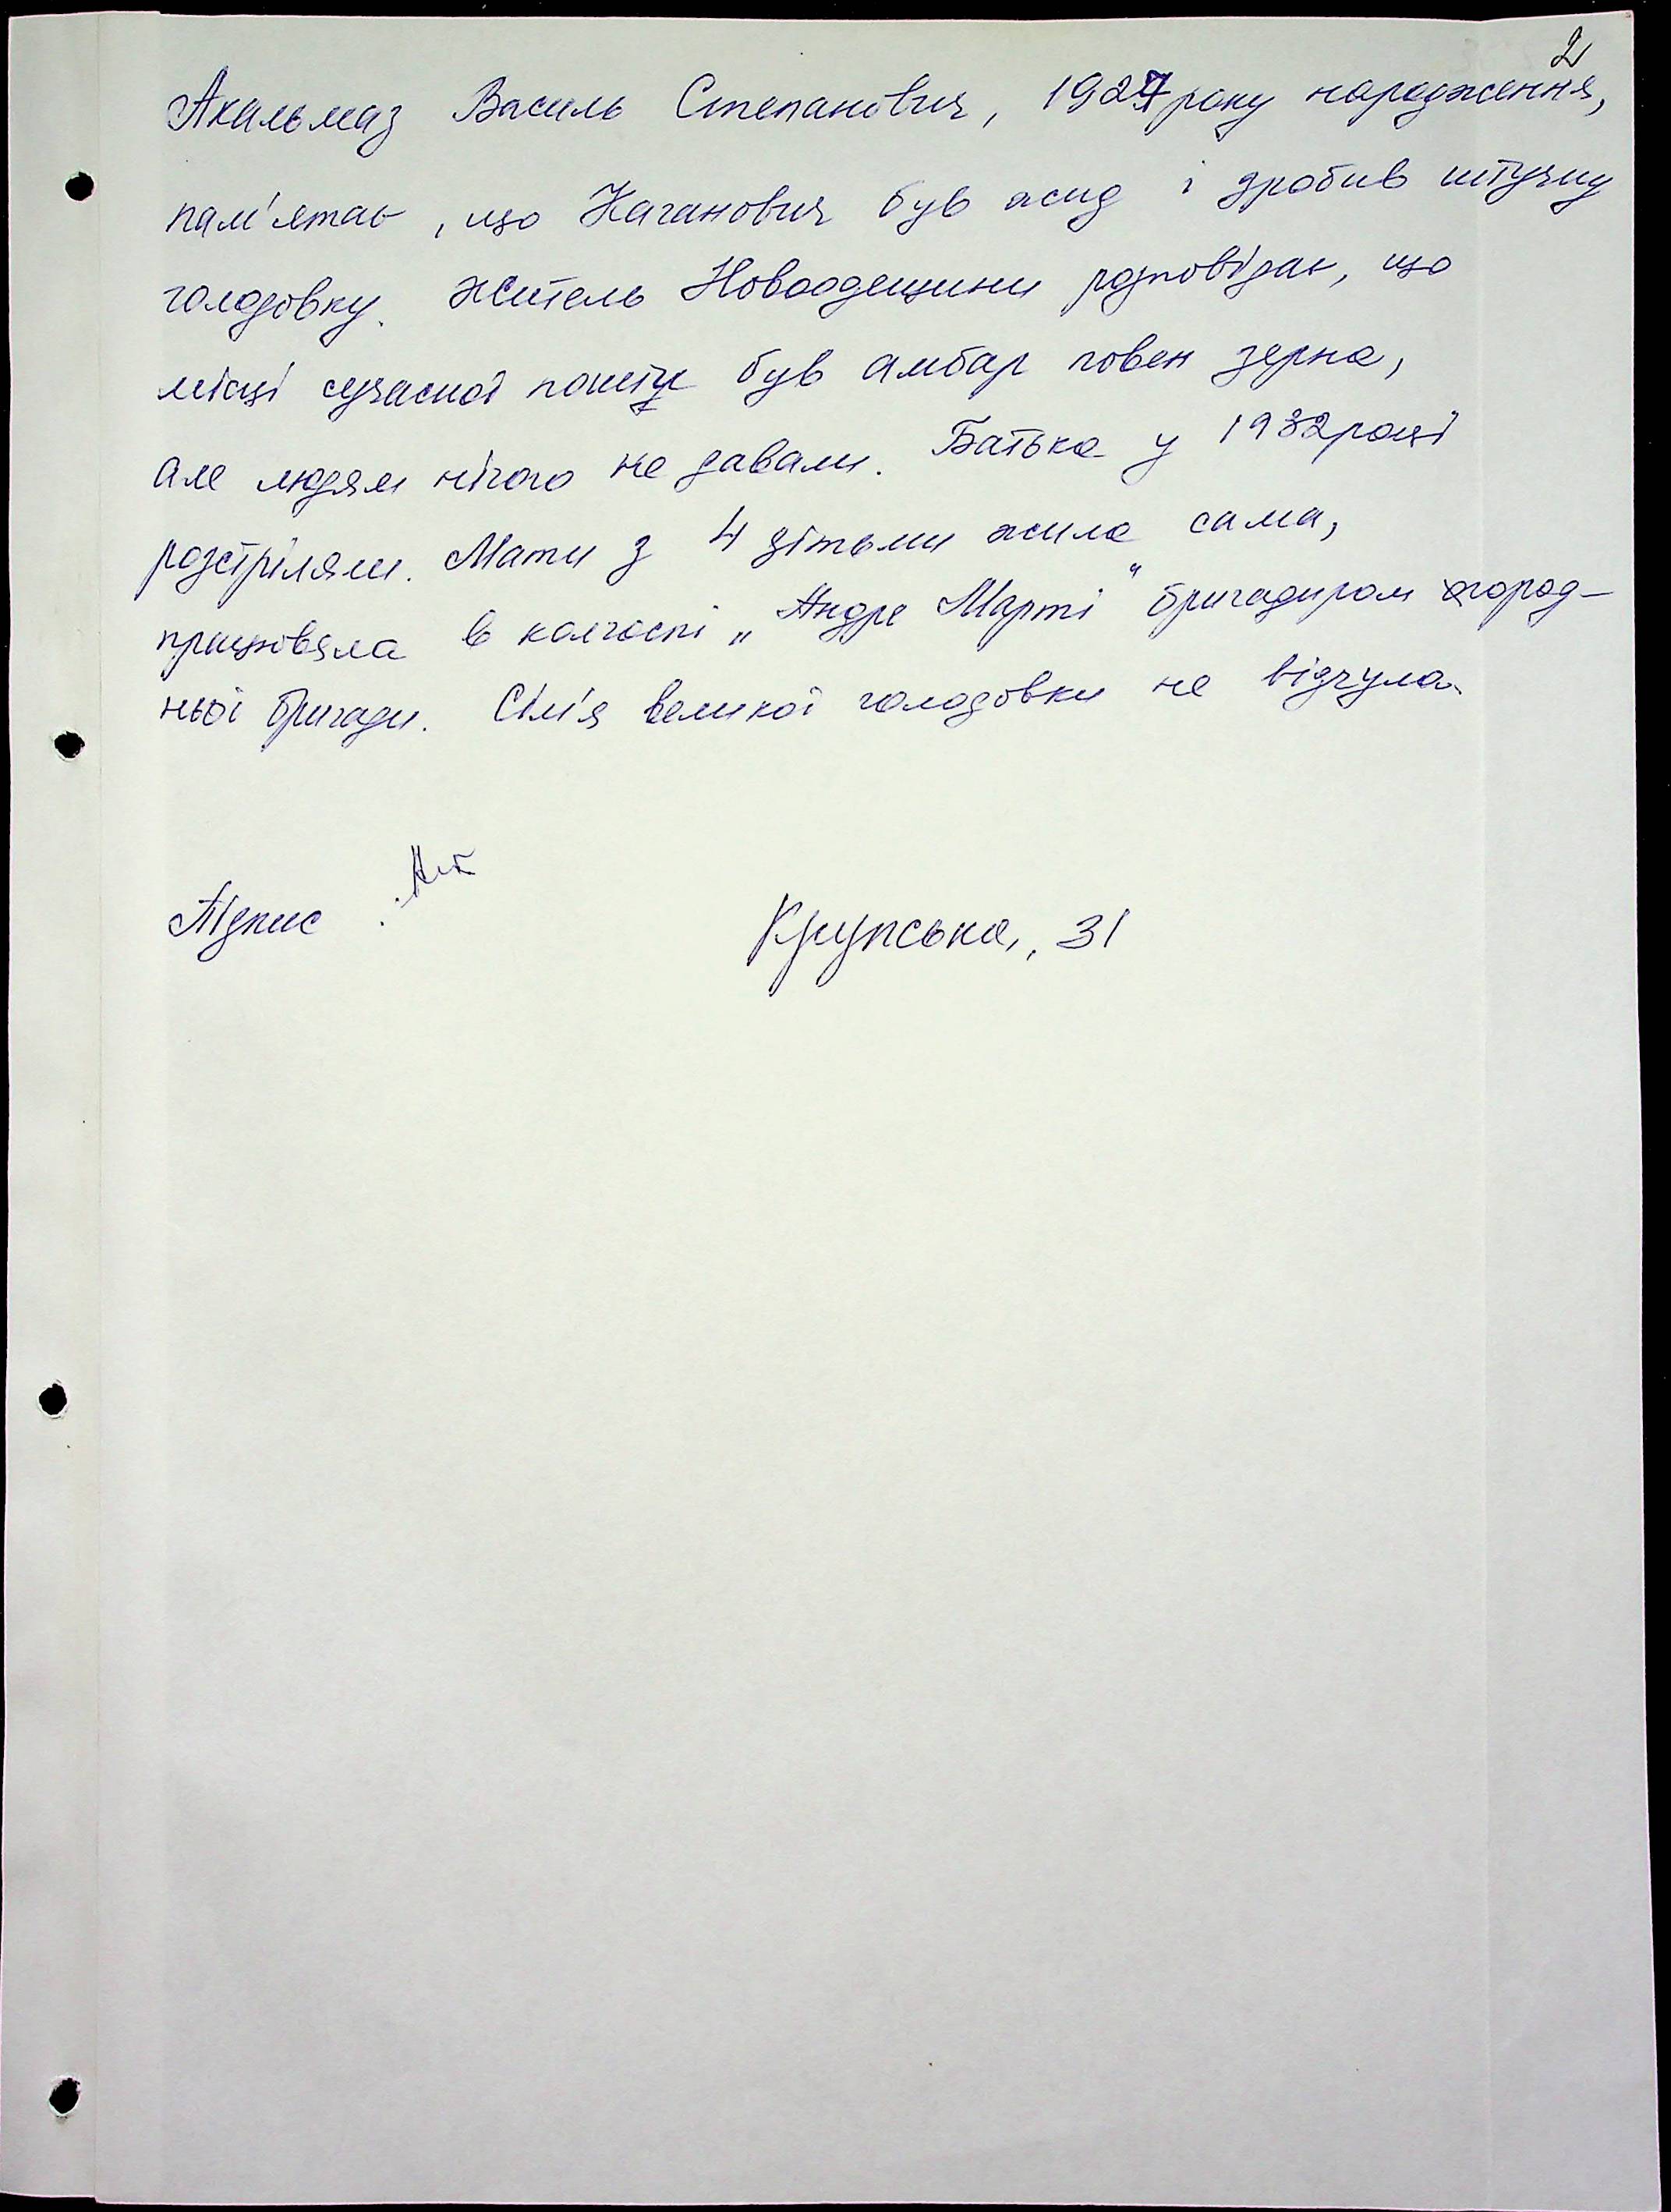 2
Акальмаз Василь Степанович, 1927 року народження,
пам'ятає, що Каганович був жид і зробив штучну
голодовку. Житель Новоодещини розповідає, що
місці сучасної пошти був амбар повен зерна,
але людям нічого не давали. Батька у 1932 році
розстріляли. Мати з 4 дітьми жила сама,
працювала в колгоспі „Андре Марті" бригадиром город-
ньої бригади. Сім'я великої голодовки не відчула.
Підпис
Крупська, 31